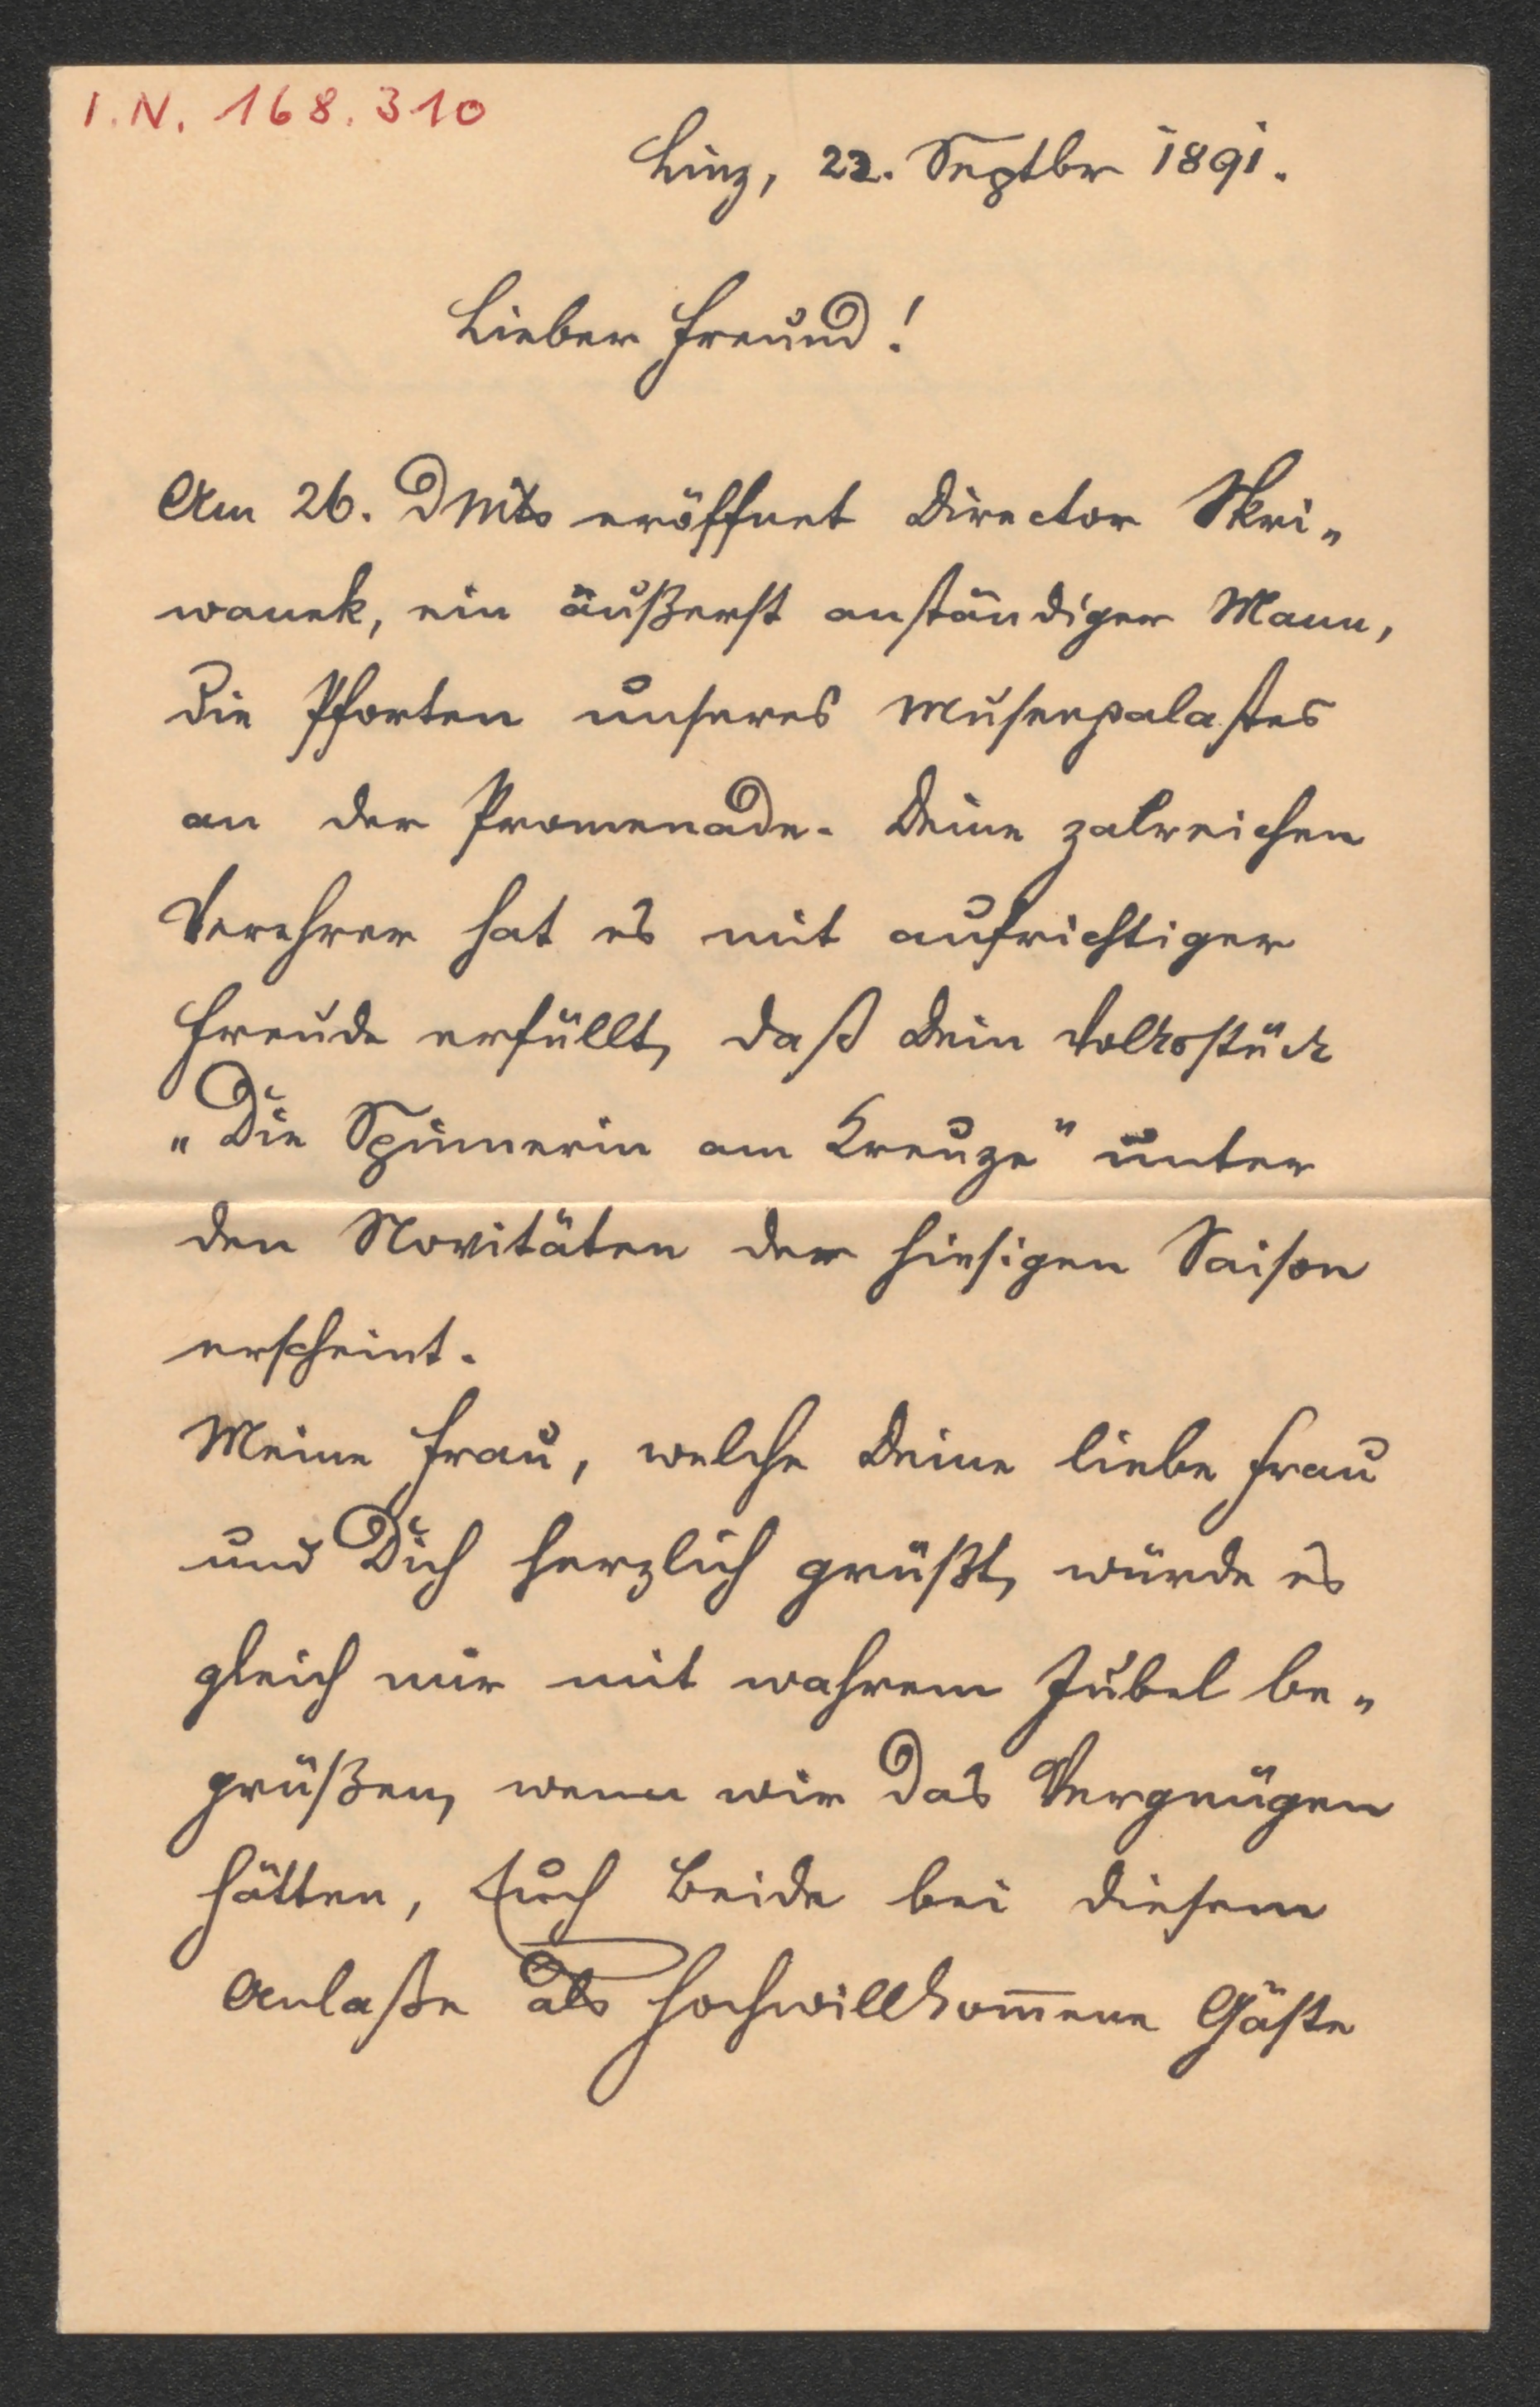 I.N. 168.310
Linz, 22. Septbr 1891.
Lieber Freund!
Am 26. d Mts eröffnet Director Skri-
wanek, ein äußerst anständiger Mann,
die Pforten unseres Musenpalastes
an der Promenade. Deine zalreichen
Verehrer hat es mit aufrichtiger
Freude erfüllt, daß Dein Volksstück
„Die Spinnerin am Kreuze" unter
den Novitäten der hiesigen Saison
erscheint.
Meine Frau, welche Deine liebe Frau
und Dich herzlich grüßt, würde es
gleich mir mit wahrem Jubel be-
grüßen, wenn wir das Vergnügen
hätten, Euch Beide bei diesem
Anlaße als hochwillkom̅ene Gäste